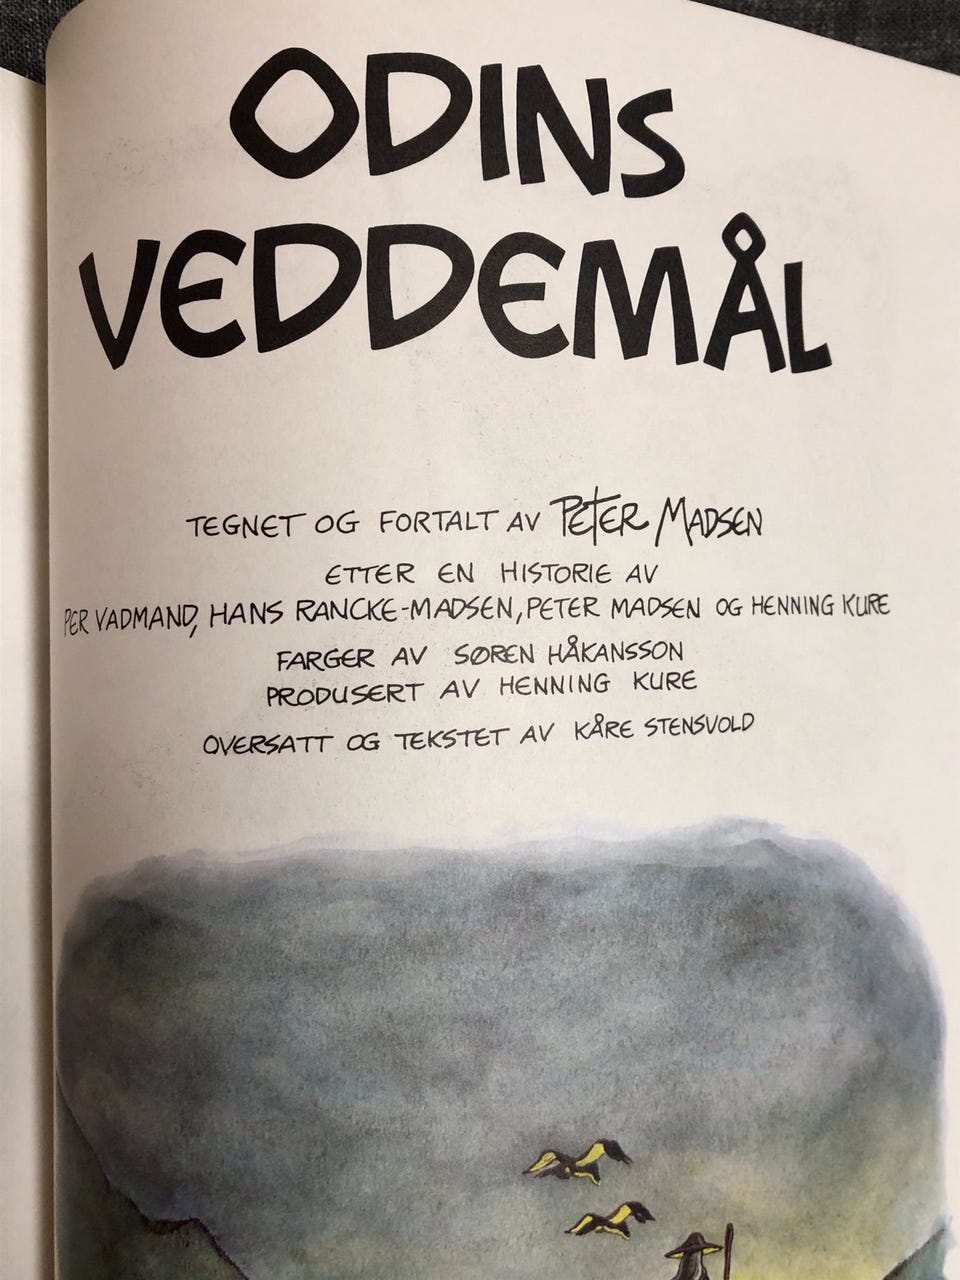 ODINS
VEDDEMÅL
TEGNET OG FORTALT AV PETER MADSEN
ETTER EN HISTORIE AV
PER VADMAND, HANS RANCKE-MADSEN, PETER MADSEN OG HENNING KURE
FARGER AV SØREN HÅKANSSON
PRODUSERT AV HENNING KURE
OVERSATT OG TEKSTET AV KÅRE STENSVOLD